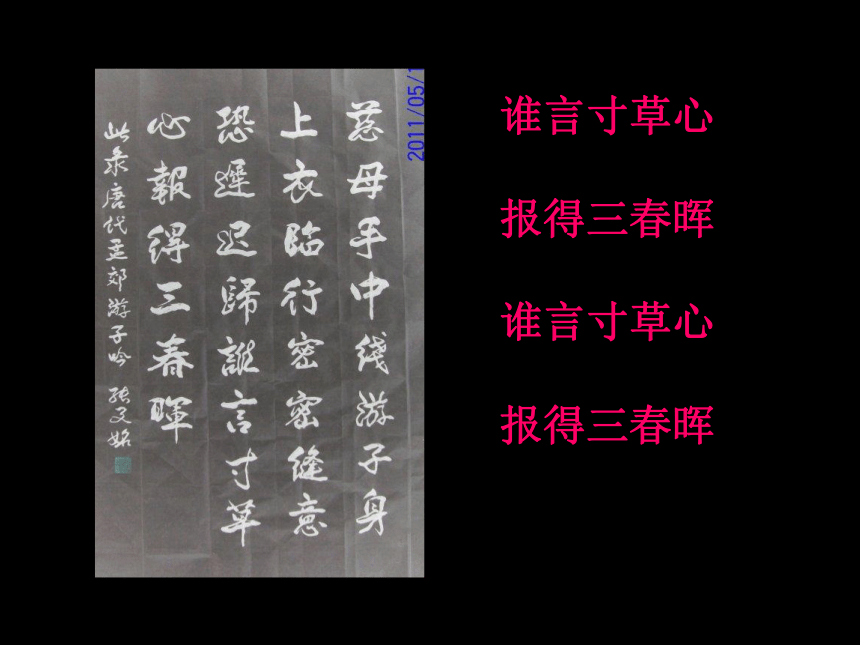 慈母手中綫游子身
上衣臨行密密縫意
恐遲迟歸誰言寸草
心報得三春暉
此录唐代孟郊游子吟
2011/05/1
谁言寸草心
报得三春晖
谁言寸草心
报得三春晖